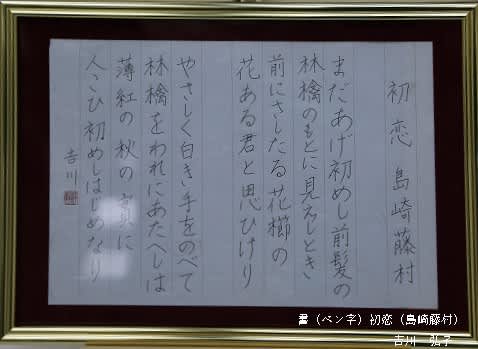 初恋 島崎藤村
まだあげ初めし前髪の
林檎のもとに見えしとき
前にさしたる花櫛の
花ある君と思ひけり
やさしく白き手をのべて
林檎をわれにあたへしは
薄紅の秋の實に
人こひ初めしはじめなり
吉川
書(ペン字)初恋(島崎藤村)
吉川 弘子